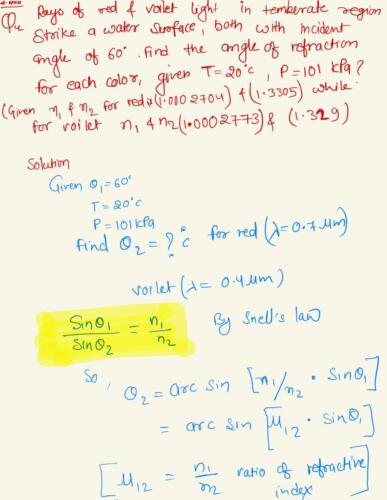 Q4 Rays of red & voilet light in temberate region
Strike a water Surface, both with incident
angle of 60°. Find the angle of refraction
for each color, given T=20°c, P=101 kPa?
(Given n₁ & n₂ for red is (1.0002704) & (1.3305) while
for voilet n₁ & n₂ (1.0002773) & (1.329)
Solution
Given θ₁=60°
T=20°c
P=101kPa
find θ₂=? ċ for red (λ=0.7 μm)
voilet (λ= 0.4μm)
Sinθ₁/Sinθ₂ = n₁/n₂ By Snell's law
So, θ₂= arc sin [n₁/n₂ • Sinθ₁]
= arc sin [μ₁₂ • Sinθ₁]
[μ₁₂ = n₁/n₂ ratio of refractive
index]